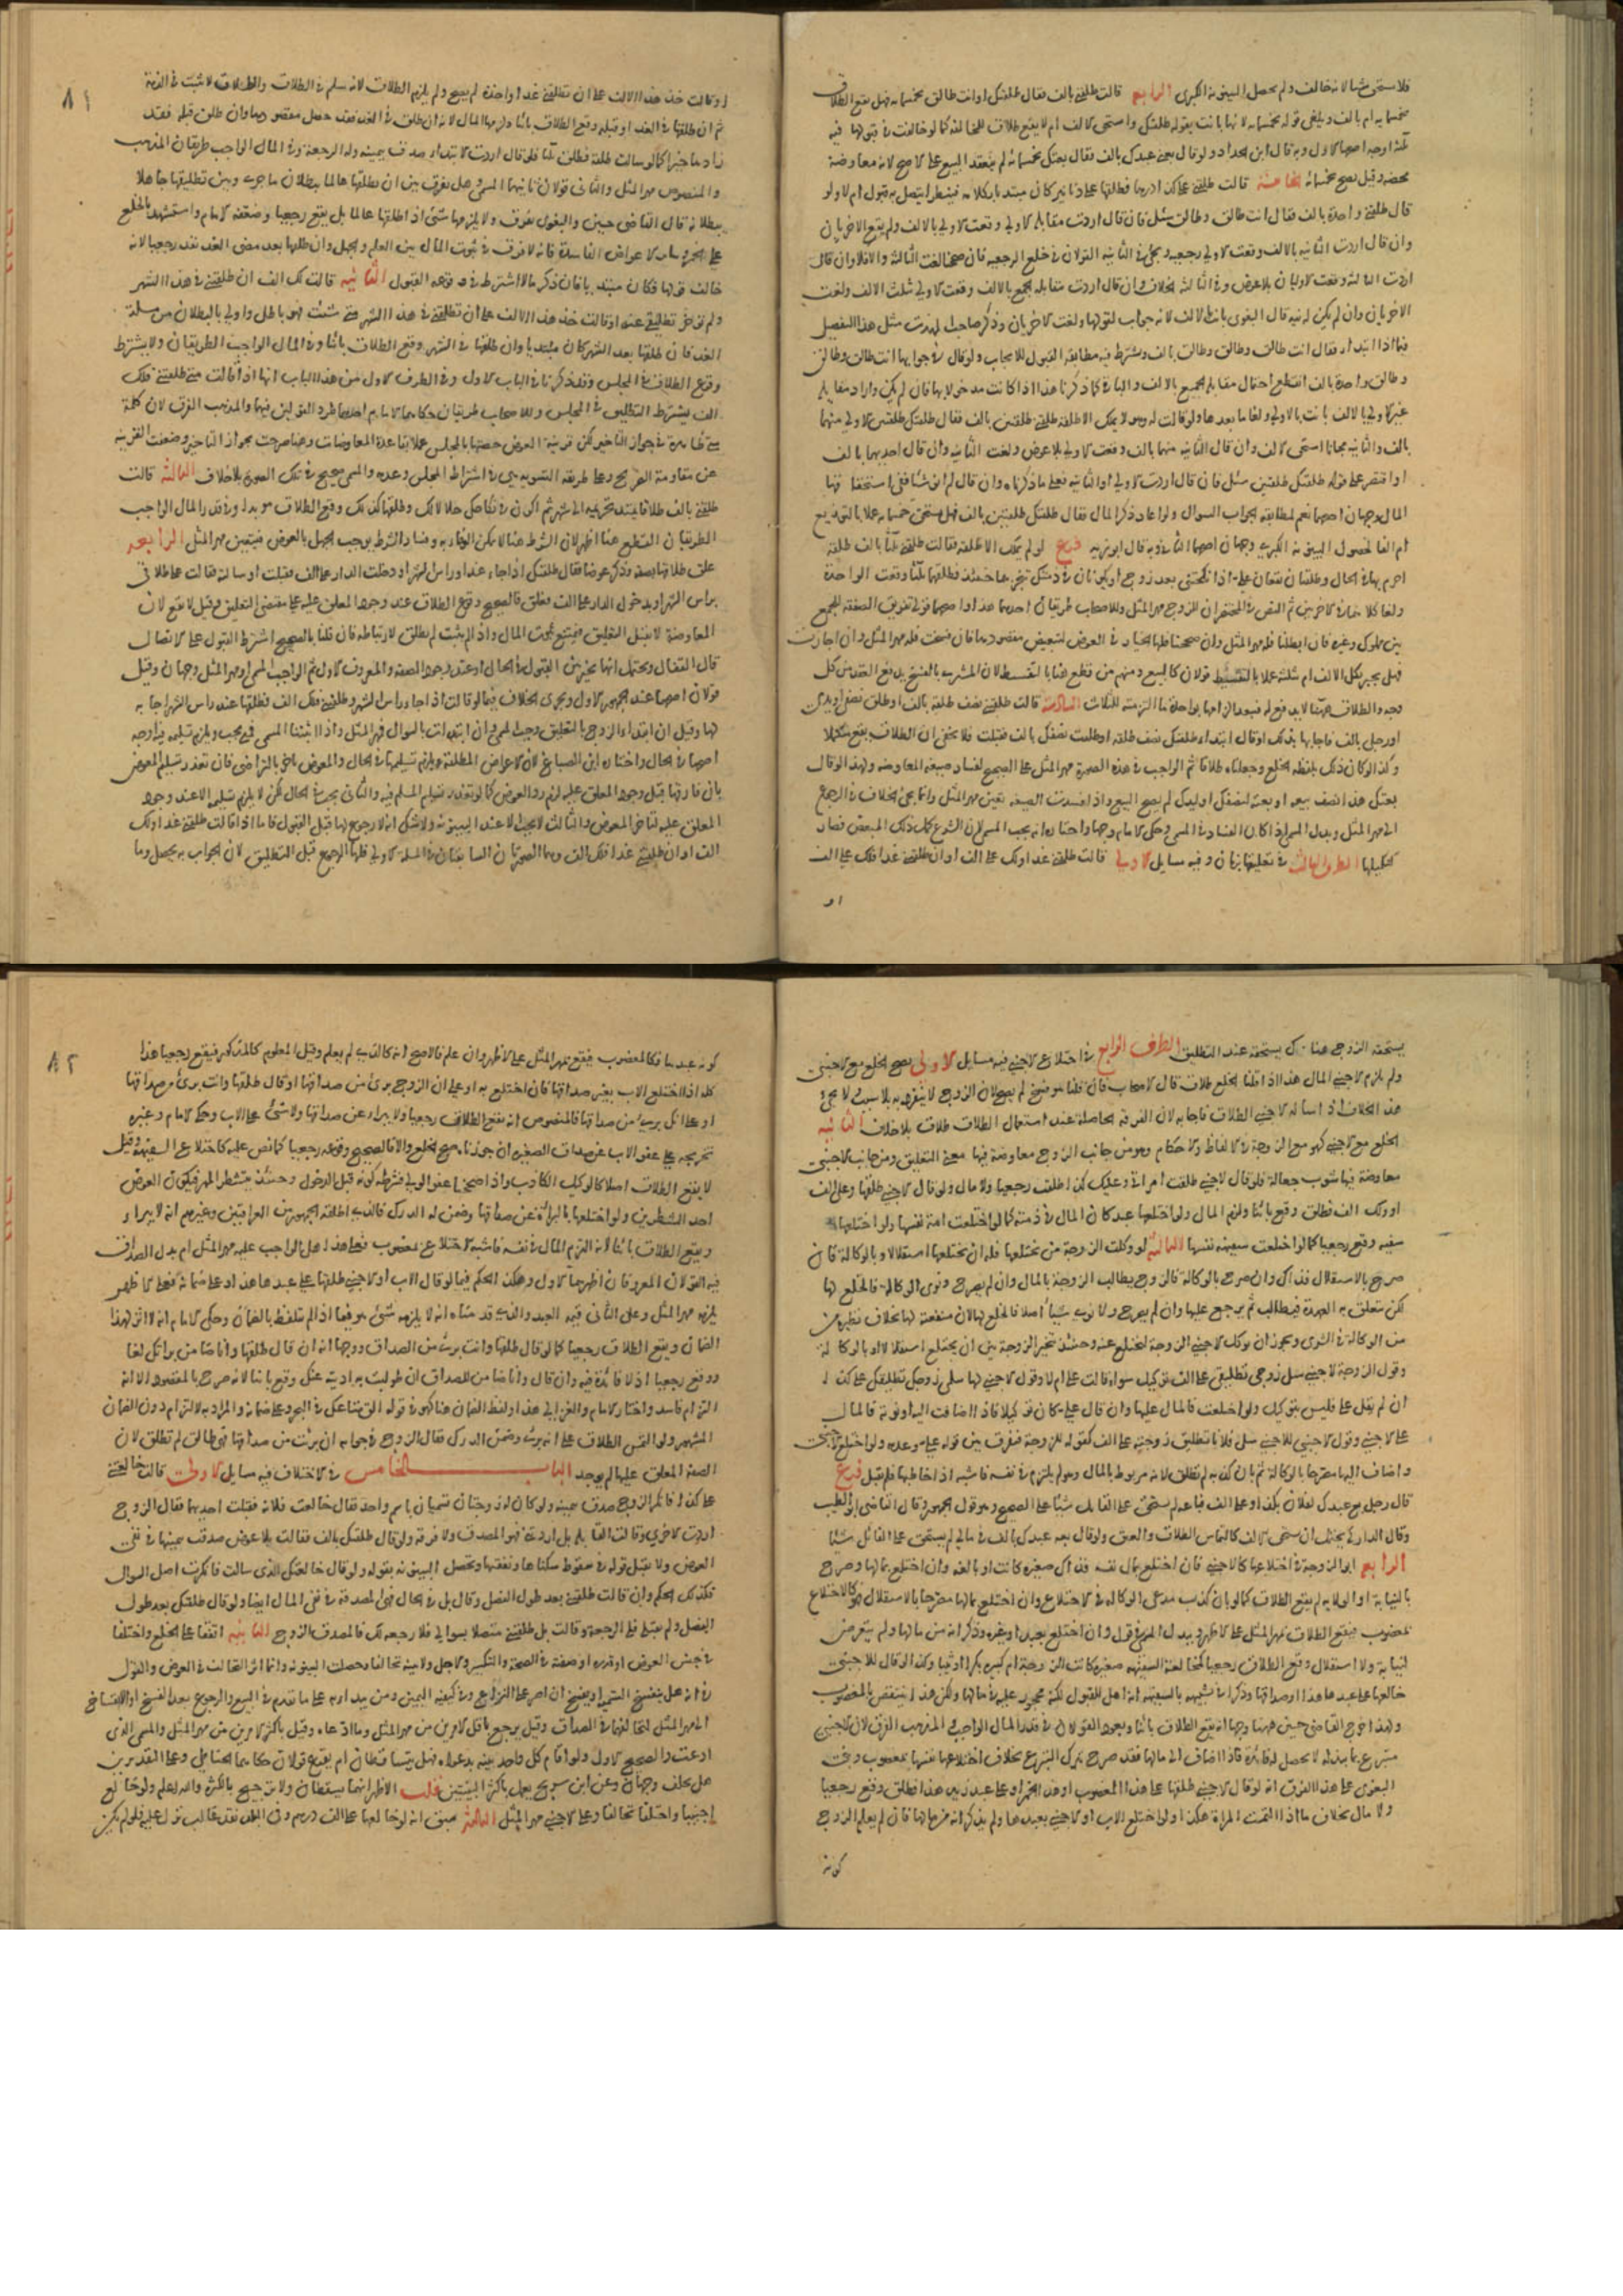 فلا يستحق شيا لانه خالف ولم يحصل البينونة الكبرى الرابع قالت طلقني بالف فقال طلقتك او انت طالق بخمسماية فهل يقع الطلاق
خمسمايه ام بالف ويلغي قوله بخمسمايه لانها بانت بقوله طلقتك واستحق الالف ام لا يقع طلاق للمخالفة كما لو خالفت في قبولها فيه
ثلثة اوجه اصحها الاول وبه قال ابن الحداد ولو قال بعني عبدك بالف فقال بعتك بخمسمائة لم ينعقد البيع على الاصح لانه معاوضة
محضة وقيل يصح بخمسمائة الخامسة قالت طلقني على كذا درهما فطلقها على دنانير كان مبتديا بكلامه فينظر ايتصل به قبول ام لا ولو
قال طلقني واحدة بالف فقال انت طالق وطالق سئل فان قال اردت مقابلة الاولي وقعت الاولي بالالف ولم يقع الاخريان
وان قال اردت الثانيه بالالف وقعت الاولي رجعيه ويجئ في الثانيه القولان في خلع الرجعيه فان صح لغت الثالثة والا فلا وان قال
اردت الثالثة وقعت الاوليان بلا عوض وفي الثالثة الخلاف وان قال اردت مقابلة الجميع بالالف وقعت الاولي بثلث الالف ولغت
الاخريان وان لم يكن له نيه قال البغوي بانت بالالف لانه جواب لقولها ولغت الاخريان وذكر صاحب المهذب مثل هذا التفصيل
فيما اذا ابتدا فقال انت طالق وطالق وطالق بالف ويشترط فيه مطابقة القبول للايجاب ولو قال في جوابها انت طالق وطالق
وطالق واحدة بالف انقطع احتمال مقابلة الجميع بالالف والباقي كما ذكرنا هذا اذا كانت مدخولا بها فان لم يكن واراد مقابلة
غير الاولي بالالف بانت بالاولي ولغا ما بعدها ولو قالت له وهو لا يملك الا طلقة طلقني طلقتين بالف فقال طلقتك طلقتين الاولي منهما
بالف والثانية مجانا استحق الالف وان قال الثانية منهما بالف وقعت الاولي بلا عوض ولغت الثانيه وان قال احديهما بالف
او اقتصر على قوله طلقتك طلقتين سئل فان قال اردت الاولي او الثانيه فعلي ما ذكرناه وان قال لم انو شيا ففي استحقاقها
المال وجهان اصحهما نعم لمطابقة الجواب السوال ولو اعاد ذكر المال فقال طلقتك طلقتين بالف فهل يستحق خمسمايه عملا بالتوزيع
ام الفا لحصول البينونة الكبري وجهان اصحهما الثاني وبه قال ابو زيد فرع لو لم يملك الا طلقة فقالت طلقني ثلثا بالف طلقة
احرم بها في الحال وطلقتان تقعان علي اذا نكحتني بعد زوج او يكونان في ذمتك تنجزهما حينئذ فطلقها ثلثا وقعت الواحدة
ولغا كلامها في الاخريين ثم النص في المختصر ان للزوج مهر المثل وللاصحاب طريقان احدهما هذا واصحهما قولي تفريق الصفقة للجمع
بين مملوك وغيره فان ابطلنا فله مهر المثل وان صححنا فلها الخيار في العوض لتبعيض مقصودها فان فسخت فله مهر المثل وان اجازت
فهل يجيز بكل الالف ام ثلثه عملا بالتقسيط قولان كالبيع ومنهم من قطع هنا بالتقسيط لان المشتري بالفسخ يدفع العقد من كل
وجه والطلاق ههنا لا يدفع له السادسة قالت طلقني نصف طلقة بالف او طلق نصفي او يدي
او رجلي بالف فاجابها بذلك او قال ابتداء طلقتك نصف طلقة او طلقت نصفك بالف فقبلت فلا يخفي ان الطلاق يقع مكملا
وكذا لو كان ذلك بلفظة الخلع وجعلناه طلاقا ثم الواجب في هذه الصورة مهر المثل على الصحيح لفساد صيغه المعاوضه ولهذا لو قال
بعتك هذا نصف بيعه او بعته لنصفك او ليدك لم يصح البيع واذا فسدت الصيغه تعين مهر المثل وانما يجئ الخلاف في الرجوع
الي مهر المثل وبدل المسمي اذا كان الفساد في المسمي وحكي الامام وجها واختاره انه يجب المسمي لان الشرع كمل ذلك المبعض فصار
كتكميلها الطرف الثالث في تعليقها بزمان وفيه مسايل الاولي قالت طلقني غدا ولك على الف او ان طلقتني غدا فلك علي الف
او
او قالت خذ هذا الالف على ان تطلقني غدا واحدة لم يصح ولم يلزم الطلاق لانه سلم في الطلاق والطلاق لا يثبت في الذمة
ثم ان طلقها في الغد او قبله وقع الطلاق بائنا ولزمها المال لانه ان طلق في الغد فقد حصل مقصودها وان طلق قبله فقد
زادها خيرا كما لو سالت طلقة فطلق ثلثا فلو قال اردت الابتداء صدق بيمينه وله الرجعة وفي المال الواجب طريقان المذهب
والمنصوص مهر المثل والثاني قولان ثانيهما المسمي وهل يفرق بين ان يطلقها عالما ببطلان ما جري وبين تطليقها جاهلا
ببطلانه قال القاضي حسين والبغوي يفرق ولا يلزمها شئ اذا طلقها عالما بل يقع رجعيا وضعفه الامام واستشهد بالخلع
على الخمر وساير الاعواض الفاسدة فانه لا فرق في ثبوت المال بين العلم والجهل وان طلقها بعد مضي الغد نفذ رجعيا لانه
خالف قولها فكان مبتديا فان ذكر مالا اشترط في وقوعه القبول الثانيه قالت لك الف ان طلقتني في هذا الشهر
ولم تؤخر تطليقي عنه او قالت خذ هذا الالف على ان تطلقني في هذا الشهر متي شئت فهو باطل واولي بالبطلان من مسئلة
الغد فان طلقها بعد الشهر كان مبتديا وان طلقها في الشهر وقع الطلاق بائنا وفي المال الواجب الطريقان ولا يشترط
وقوع الطلاق في المجلس وقد ذكرنا في الباب الاول وفي الطرف الاول من هذا الباب انها اذا قالت متي طلقتني فلك
الف يشترط التطليق في المجلس وللاصحاب طريقان حكاهما الامام احدهما طرد القولين فيهما والمذهب الفرق لان كلمة
متي ظاهرة في جواز التاخير لكن قرينة العوض خصتها بالمجلس عملا بقاعدة المعاوضات وهنا صرحت بجواز التاخير وضعفت القرينه
عن مقاومة الصريح وعلى طريقة التسويه يجئ في اشتراط المجلس وعدمه والمسمي صحيح في تلك الصورة بلا خلاف الثالثة قالت
طلقني بالف طلاقا يمتد تحريمه الي شهر ثم اكون في نكاحك حلالا لك وطلقها كذلك وقع الطلاق موبدا وفي قدر المال الواجب
الطريقان القطع هنا اظهر لان الشرط هنا لا يمكن الوفاء به وفساد الشرط يوجب الجهل بالعوض فيتعين مهر المثل الرابعة
علق طلاقها بصفة وذكر عوضا فقال طلقتك اذا جاء غدا وراس الشهر او دخلت الدار على الف فقبلت او سالته فقالت على طلاقي
براس الشهر او بدخول الدار على الف فعلق فالصحيح وقوع الطلاق عند وجود المعلق عليه على مقتضي التعليق وقيل لا يقع لان
المعاوضة لا تقبل التعليق فيمتنع ثبوت المال واذا لم يثبت لم تطلق لارتباطه فان قلنا بالصحيح اشترط القبول على الاتصال
قال القفال ويحتمل انها بخير بين القبول في الحال او عند وجود الصفة والمعروف الاول ثم الواجب المسمي او مهر المثل وجهان وقيل
قولان اصحهما عند الجمهور الاول ويجري الخلاف فيما لو قالت اذا جاء راس الشهر وطلقتني فلك الف فطلقها عند راس الشهر اجابه
لها وقيل ان ابتداء الزوج بالتعليق وجب المسمي وان ابتدات بالسوال فمهر المثل واذا اثبتنا المسمي فمتي يجب ويلزم تسليمه فيه اوجه
اصحها في الحال واختاره ابن الصباغ لان الاعواض المطلقة يلزم تسليمها في الحال والمعوض تاخر بالتراضي فان تعذر تسليم المعوض
بان فارقها قبل وجود المعلق عليه لزم رد العوض كما لو تعذر تسليم المسلم فيه والثاني يجب في الحال لكن لا يلزم تسليمه الا عند وجود
المعلق عليه لتاخر المعوض والثالث لا يجب الا عند البينونه ولا شك انه لا رجوع لها قبل القبول فاما اذا قالت طلقني غدا ولك
الف او ان طلقتني غدا فلك الف وهما الصورتان السابقتان في المسئلة الاولي فلها الرجوع قبل التطليق لان الجواب به يحصل وما
٨١
يستحقه الزوج هناك يستحقه عند التطليق الطرف الرابع في اختلاع الاجنبي فيه مسايل الاولي يصح الخلع مع الاجنبي
ولم يلزم الاجنبي المال هذا اذا قلنا الخلع طلاق قال الاصحاب فان قلنا هو فسخ لم يصح لان الزوج لا ينفرد به بلا سبب ولا يجئ
هذا الخلاف اذا ساله الاجنبي الطلاق فاجابه لان الفرقة الحاصلة عند استعمال الطلاق طلاق بلا خلاف الثانية
الخلع مع الاجنبي كهو مع الزوجة في الالفاظ والاحكام وهو من جانب الزوج معاوضة فيها معني التعليق ومن جانب الاجنبي
معاوضة فيها شوب جعالة فلو قال الاجنبي طلقت امراتي وعليك كذا طلقت رجعيا ولا مال ولو قال الاجنبي طلقها وعلى الف
او ولك الف فطلق وقع بائنا ولزم المال ولو اختلعها عبد كان المال في ذمته كما لو اختلعت امة نفسها ولو اختلعها
سفيه وقع رجعيا كما لو اختلعت سفيهه نفسها الثالثة لو وكلت الزوجة من يختلعها فله ان يختلعها استقلالا وبالوكالة فان
صرح بالاستقلال فذاك وان صرح بالوكالة فالزوج يطالب الزوجة بالمال وان لم يصرح ونوي الوكالة فالخلع لها
لكن تتعلق به العهدة فيطالب ثم يرجع عليها وان لم يصرح ولا نوي شيئا اصلا فالخلع لها لان منفعته لها بخلاف نظيره
من الوكالة في الشري ويجوز ان يوكل الاجنبي الزوجة لتختلع عنه وحينئذ تتخير الزوجة بين ان تختلع استقلالا او بالوكالة
وقول الزوجة لاجنبي سل زوجي تطليقي على الف توكيل سواء قالت علي ام لا وقول الاجنبي لها سلي زوجك تطليقك على كذا
ان لم يقل علي فليس بتوكيل ولو اختلعت فالمال عليها وان قال علي كان توكيلا فاذا اضافت اليه او نوته فالمال
على الاجنبي وقول الاجنبي للاجنبي سل فلانا تطليق زوجته على الف كقوله للزوجة فنفرق بين قوله علي وعدمه ولو اختلع الاجنبي
واضاف اليها مصرحا بالوكالة ثم بان كذبه لم تطلق لانه مربوط بالمال وهو لم يلتزم في نفسه فاشبه اذا خاطبها فلم تقبل فرع
قال رجل بع عبدك لفلان بكذا وعلى الف فباعه لم يستحق على القايل شيئا على الصحيح وهو قول الجمهور وقال القاضي ابو الطيب
وقال الداركي يحتمل ان يستحق الالف كالتماس الطلاق والعتق ولو قال بعه عبدك بالف في مالي لم يستحق على القائل شيئا
الرابع ابو الزوجة في اختلاعها كالاجنبي فان اختلع بمال نفسه فذاك صغيرة كانت او بالغة وان اختلع بمالها وصرح
بالنيابة او الولاية لم يقع الطلاق كما لو بان كذب مدعي الوكالة في الاختلاع وان اختلع بمالها مصرحا بالاستقلال فهو كالاختلاع
بمغصوب فيقع الطلاق بمهر المثل على الاظهر وببدل المسمي في قول وان اختلع بعبد او غيره وذكر انه من مالها ولم يتعرض
لنيابة ولا استقلال وقع الطلاق رجعيا كمخالعة السفيهه صغيرة كانت الزوجة ام كبيرة بكرا او ثيبا وكذا لو قال للاجنبي
خالعها على عبدها هذا او صداقها وذكروا في تشبيهه بالسفيه انه اهل للقبول لكنه محجور عليه في مالها ولكن هذا ينتقض بالمغصوب
ولهذا خرج القاضي حسين ههنا وجها انه يقع الطلاق بائنا ويعود القولان في قدر المال الواجب والمذهب الفرق لان الاجنبي
متبرع بما يبذله لا يحصل له فائدة فاذا اضاف الي مالها فقد صرح بترك التبرع بخلاف اختلاعها نفسها بمغصوب وبني
البغوي على هذا الفرق انه لو قال الاجنبي طلقها على هذا المغصوب او هذا الخمر او على عبد زيد هذا فطلق وقع رجعيا
ولا مال بخلاف ما اذا التمست المراة هكذا ولو اختلع الاب او الاجنبي بعبدها ولم يذكر انه من مالها فان لم يعلم الزوج
كونه
كونه عبدها فكالمغصوب فيقع بمهر المثل على الاظهر وان علم فالاصح انه كالذي لم يعلم وقيل المعلوم كالمذكور فيقع رجعيا هذا
كله اذا اختلع الاب بغير صداقها فان اختلع به او على ان الزوج برئ من صداقها او قال طلقها وانت برئ من صداقها
او على انك برئ من صداقها فالمنصوص انه يقع الطلاق رجعيا ولا يبراء عن صداقها ولا شئ على الاب وحكي الامام وغيره
تخريجه على عفو الاب عن صداق الصغيرة ان جوزناه صح الخلع والا فالصحيح وقوعه رجعيا كما نص عليه كاختلاع السفيهة وقيل
لا يقع الطلاق اصلا كالوكيل الكاذب واذا صححنا عفو الولي فشرطه كونه قبل الدخول وحينئذ يتشطر المهر فيكون العوض
احد الشطرين ولو اختلعها بالبرائة عن صداقها وضمن له الدرك فالذي اطلقه الجمهور من العراقيين وغيرهم انه لا يبراء
ويقع الطلاق بائنا لانه التزم المال في نفسه فاشبه الاختلاع بمغصوب فعلي هذا هل الواجب عليه مهر المثل ام بدل الصداق
فيه القولان المعروفان اظهرهما الاول وهكذا الحكم فيما لو قال الاب او الاجنبي طلقها على عبدها هذا وعلى ضمانه فعلي الاظهر
يلزمه مهر المثل وعلى الثاني قيمة العبد والذي قدمناه انه لا يلزمه شئ هو فيما اذا لم يتلفظ بالضمان وحكي الامام انه لا اثر لهذا
الضمان ويقع الطلاق رجعيا كما لو قال طلقها وانت برئ من الصداق ووجها انه ان قال طلقها وانا ضامن برائك لغا
ووقع رجعيا اذ لا فائدة فيه وان قال وانا ضامن للصداق ان طولبت به اديته عنك وقع بائنا لانه صرح بالمقصود الا انه
التزام فاسد واختار الامام والغزالي هذا ولفظ الضمان هنا كهو في قوله الق متاعك في البحر وعلى ضمانه والمراد به الالتزام دون الضمان
المشهور ولو التمس الطلاق على انه برئ وضمن الدرك فقال الزوج في جوابه ان برئت من صداقها فهي طالق لم تطلق لان
الصفة المعلق عليها لم يوجد الباب الخامس في الاختلاف فيه مسايل الاولي قالت خالعتني
على كذا فانكر الزوج صدق بيمينه ولو كان له زوجتان تسميان باسم واحد فقال خالعت فلانة فقبلت احديهما فقال الزوج
اردت الاخري وقالت القابلة بل اردتني فهو المصدق ولا فرقة ولو قال طلقتك بالف فقالت بلا عوض صدقت بيمينها في نفي
العوض ولا يقبل قوله في سقوط سكناها ونفقتها وتحصل البينونة بقوله ولو قال خالعتك الذي سالت فانكرت اصل السوال
فكذلك الحكم وان قالت طلقتني بعد طول الفصل وقال بل في الحال فهي المصدقة في نفي المال ايضا ولو قال طلقتك بعد طول
الفصل ولم تقبلي فلي الرجعة وقالت بل طلقتني متصلا بسوالي فلا رجعه لك فالمصدق الزوج الثانيه اتفقا على الخلع واختلفا
في جنس العوض او قدره او صفته في الصحة والتكسير والاجل ولا بينة تحالفا وحصلت البينونه وانما اثر التحالف في العوض والقول
في انه هل ينفسخ التسمية او يفسخ ان اصر على النزاع وفي كيفيه اليمين ومن يبدا به على ما تقدم في البيع والرجوع بعد الفسخ او الانفساخ
الي مهر المثل لتحالفهما في الصداق وقيل يرجع باقل الامرين من مهر المثل وما ادعاه وقيل باكثر الامرين من مهر المثل والمسمي الذي
ادعت والصحيح الاول ولو اقام كل واحد بينه بدعواه فهل يتساقطان ام يقرع قولان حكاهما الحناطي وعلى التقديرين
هل يحلف وجهان وعن ابن سريج يعمل باكثر البينتين قلت الاظهر انهما يسقطان ولا ترجيح بالكثرة والله اعلم ولو خالع
اجنبيا واختلفا تحالفا وعلى الاجنبي مهر المثل الثالثة سبق انه لو خالعها على الف درهم وفي البلد نقد غالب نزل عليه فلو لم يكن
٨٢